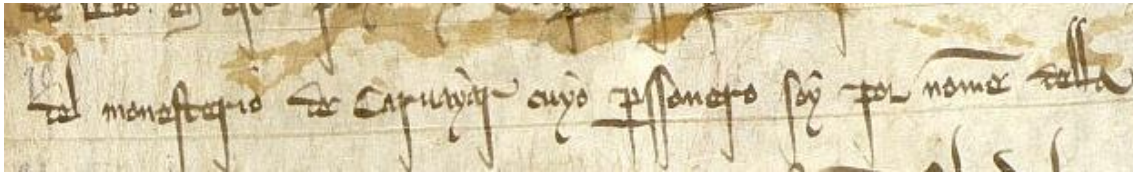 del monesterio de Caruayar cuyo pssonero soy por nome della